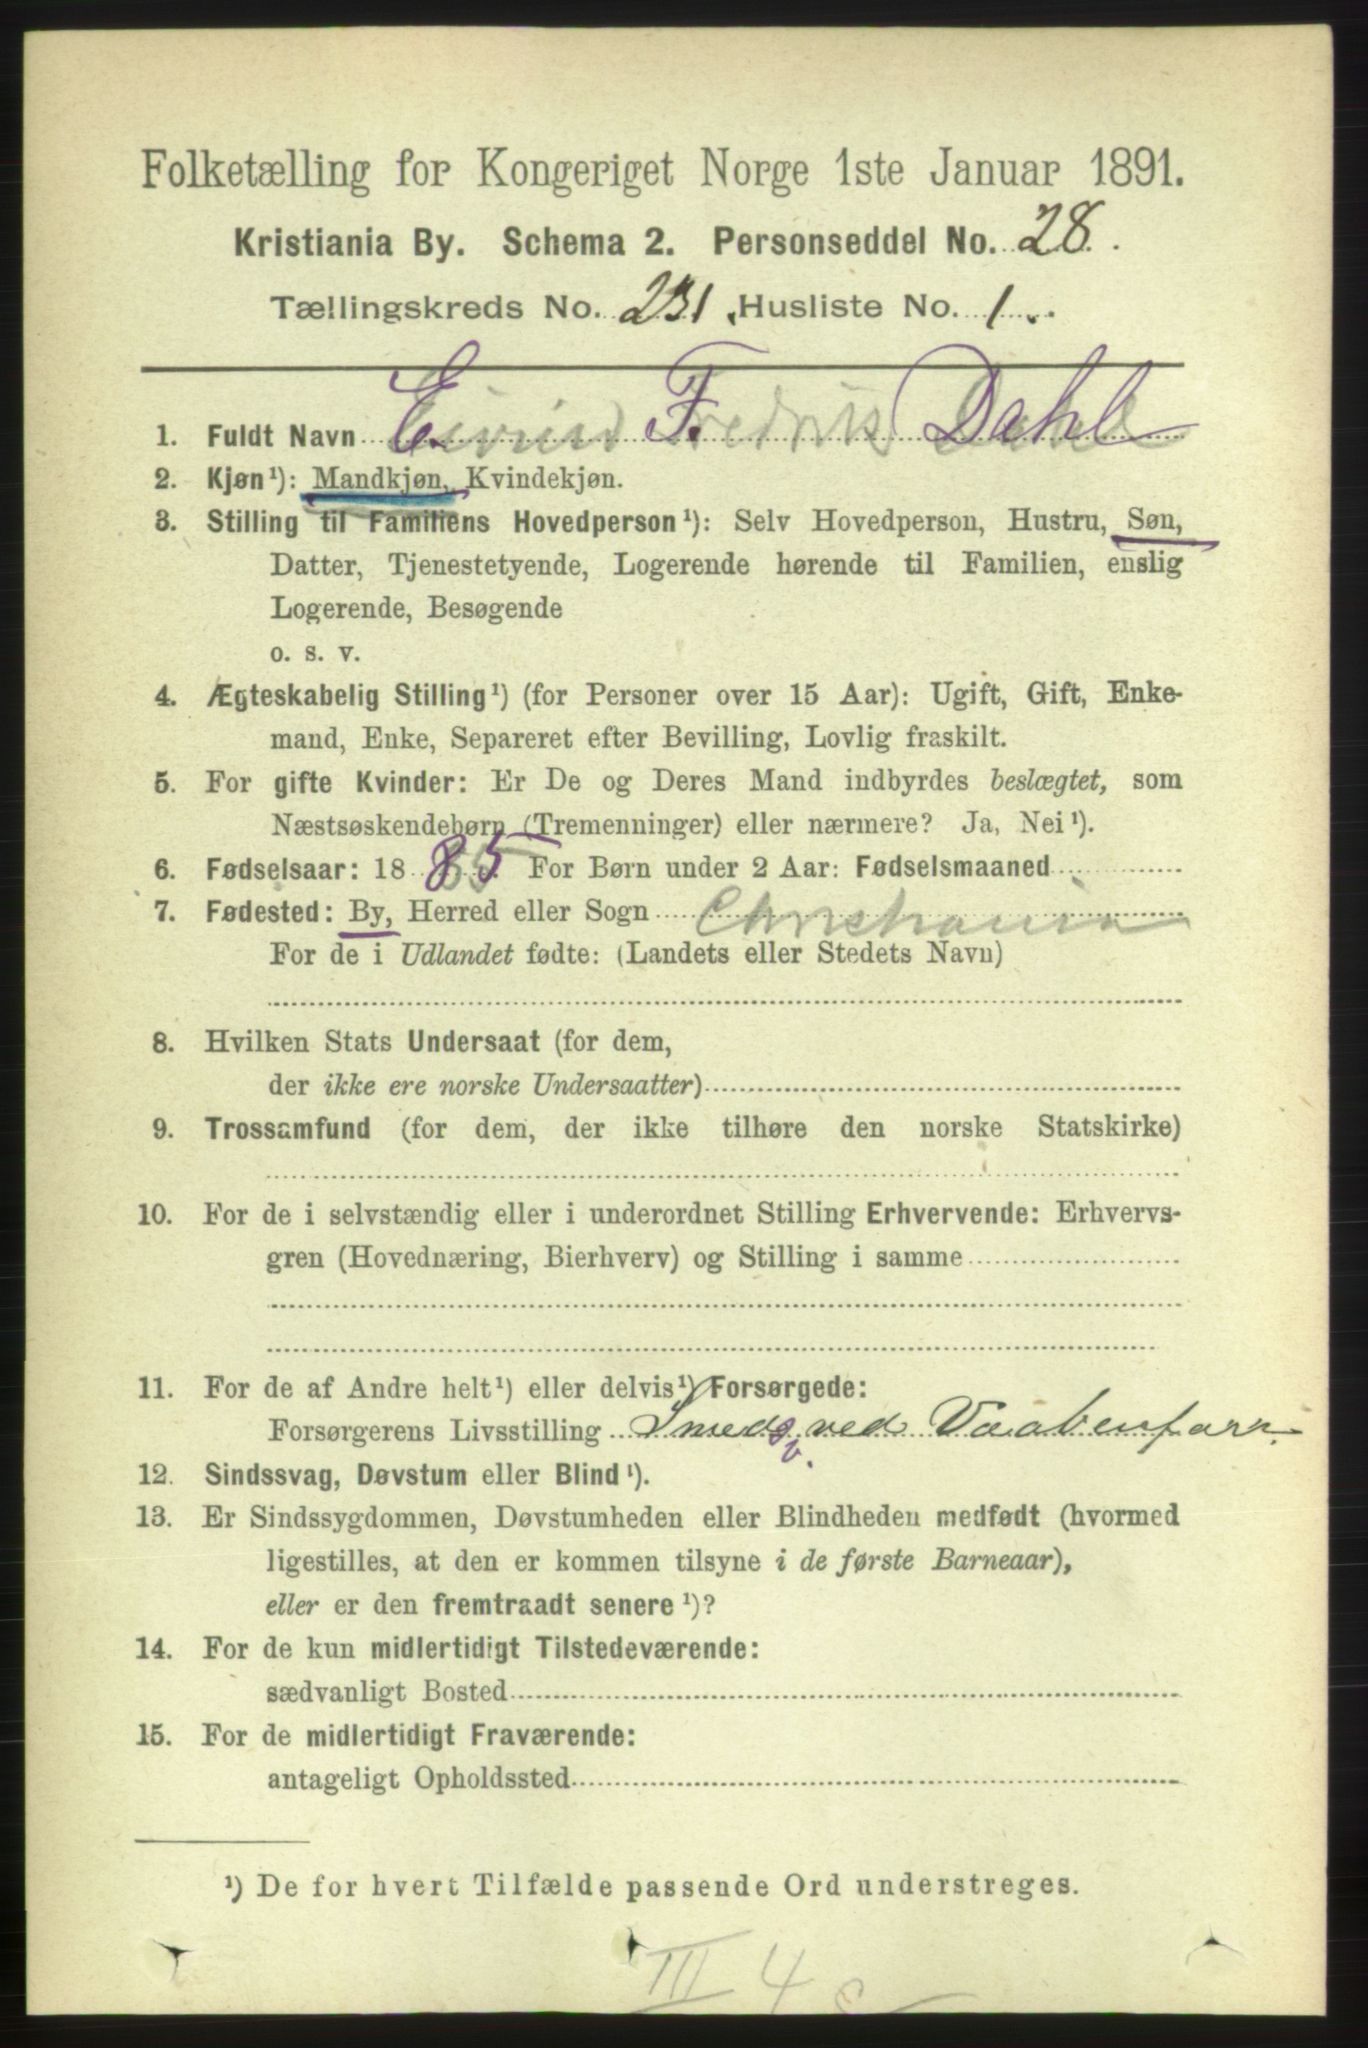 Folketælling for Kongeriget Norge 1ste Januar 1891.
Kristiania By. Schema 2. Personseddel No. 28.
Tællingskreds No. 231. Husliste No. 1.
1. Fuldt Navn Eivind Fredrik Dahl
E. F. Dahl
2. Kjøn¹): Mandkjøn, Kvindekjøn.
3. Stilling til Familiens Hovedperson¹): Selv Hovedperson, Hustru, Søn,
Datter, Tjenestetyende, Logerende hørende til Familien, enslig
Logerende, Besøgende
o. s. v.
4. Ægteskabelig Stilling¹) (for Personer over 15 Aar): Ugift, Gift, Enke-
mand, Enke, Separeret efter Bevilling, Lovlig fraskilt.
5. For gifte Kvinder: Er De og Deres Mand indbyrdes beslægtet, som
Næstsøskendebørn (Tremenninger) eller nærmere? Ja, Nei¹).
6. Fødselsaar: 1885 For Børn under 2 Aar: Fødselsmaaned
7. Fødested: By, Herred eller Sogn Christiania
For de i Udlandet fødte: (Landets eller Stedets Navn)
8. Hvilken Stats Undersaat (for dem,
der ikke ere norske Undersaatter)
9. Trossamfund (for dem, der ikke tilhøre den norske Statskirke)
10. For de i selvstændig eller i underordnet Stilling Erhvervende: Erhvervs-
gren (Hovednæring, Bierhverv) og Stilling i samme
11. For de af Andre helt¹) eller delvis¹) Forsørgede:
Forsørgerens Livsstilling Smeds ved Vaabenfarr.
12. Sindssvag, Døvstum eller Blind¹).
13. Er Sindssygdommen, Døvstumheden eller Blindheden medfødt (hvormed
ligestilles, at den er kommen tilsyne i de første Barneaar),
eller er den fremtraadt senere¹)?
14. For de kun midlertidigt Tilstedeværende:
sædvanligt Bosted
15. For de midlertidigt Fraværende:
antageligt Opholdssted
¹) De for hvert Tilfælde passende Ord understreges.
III 4